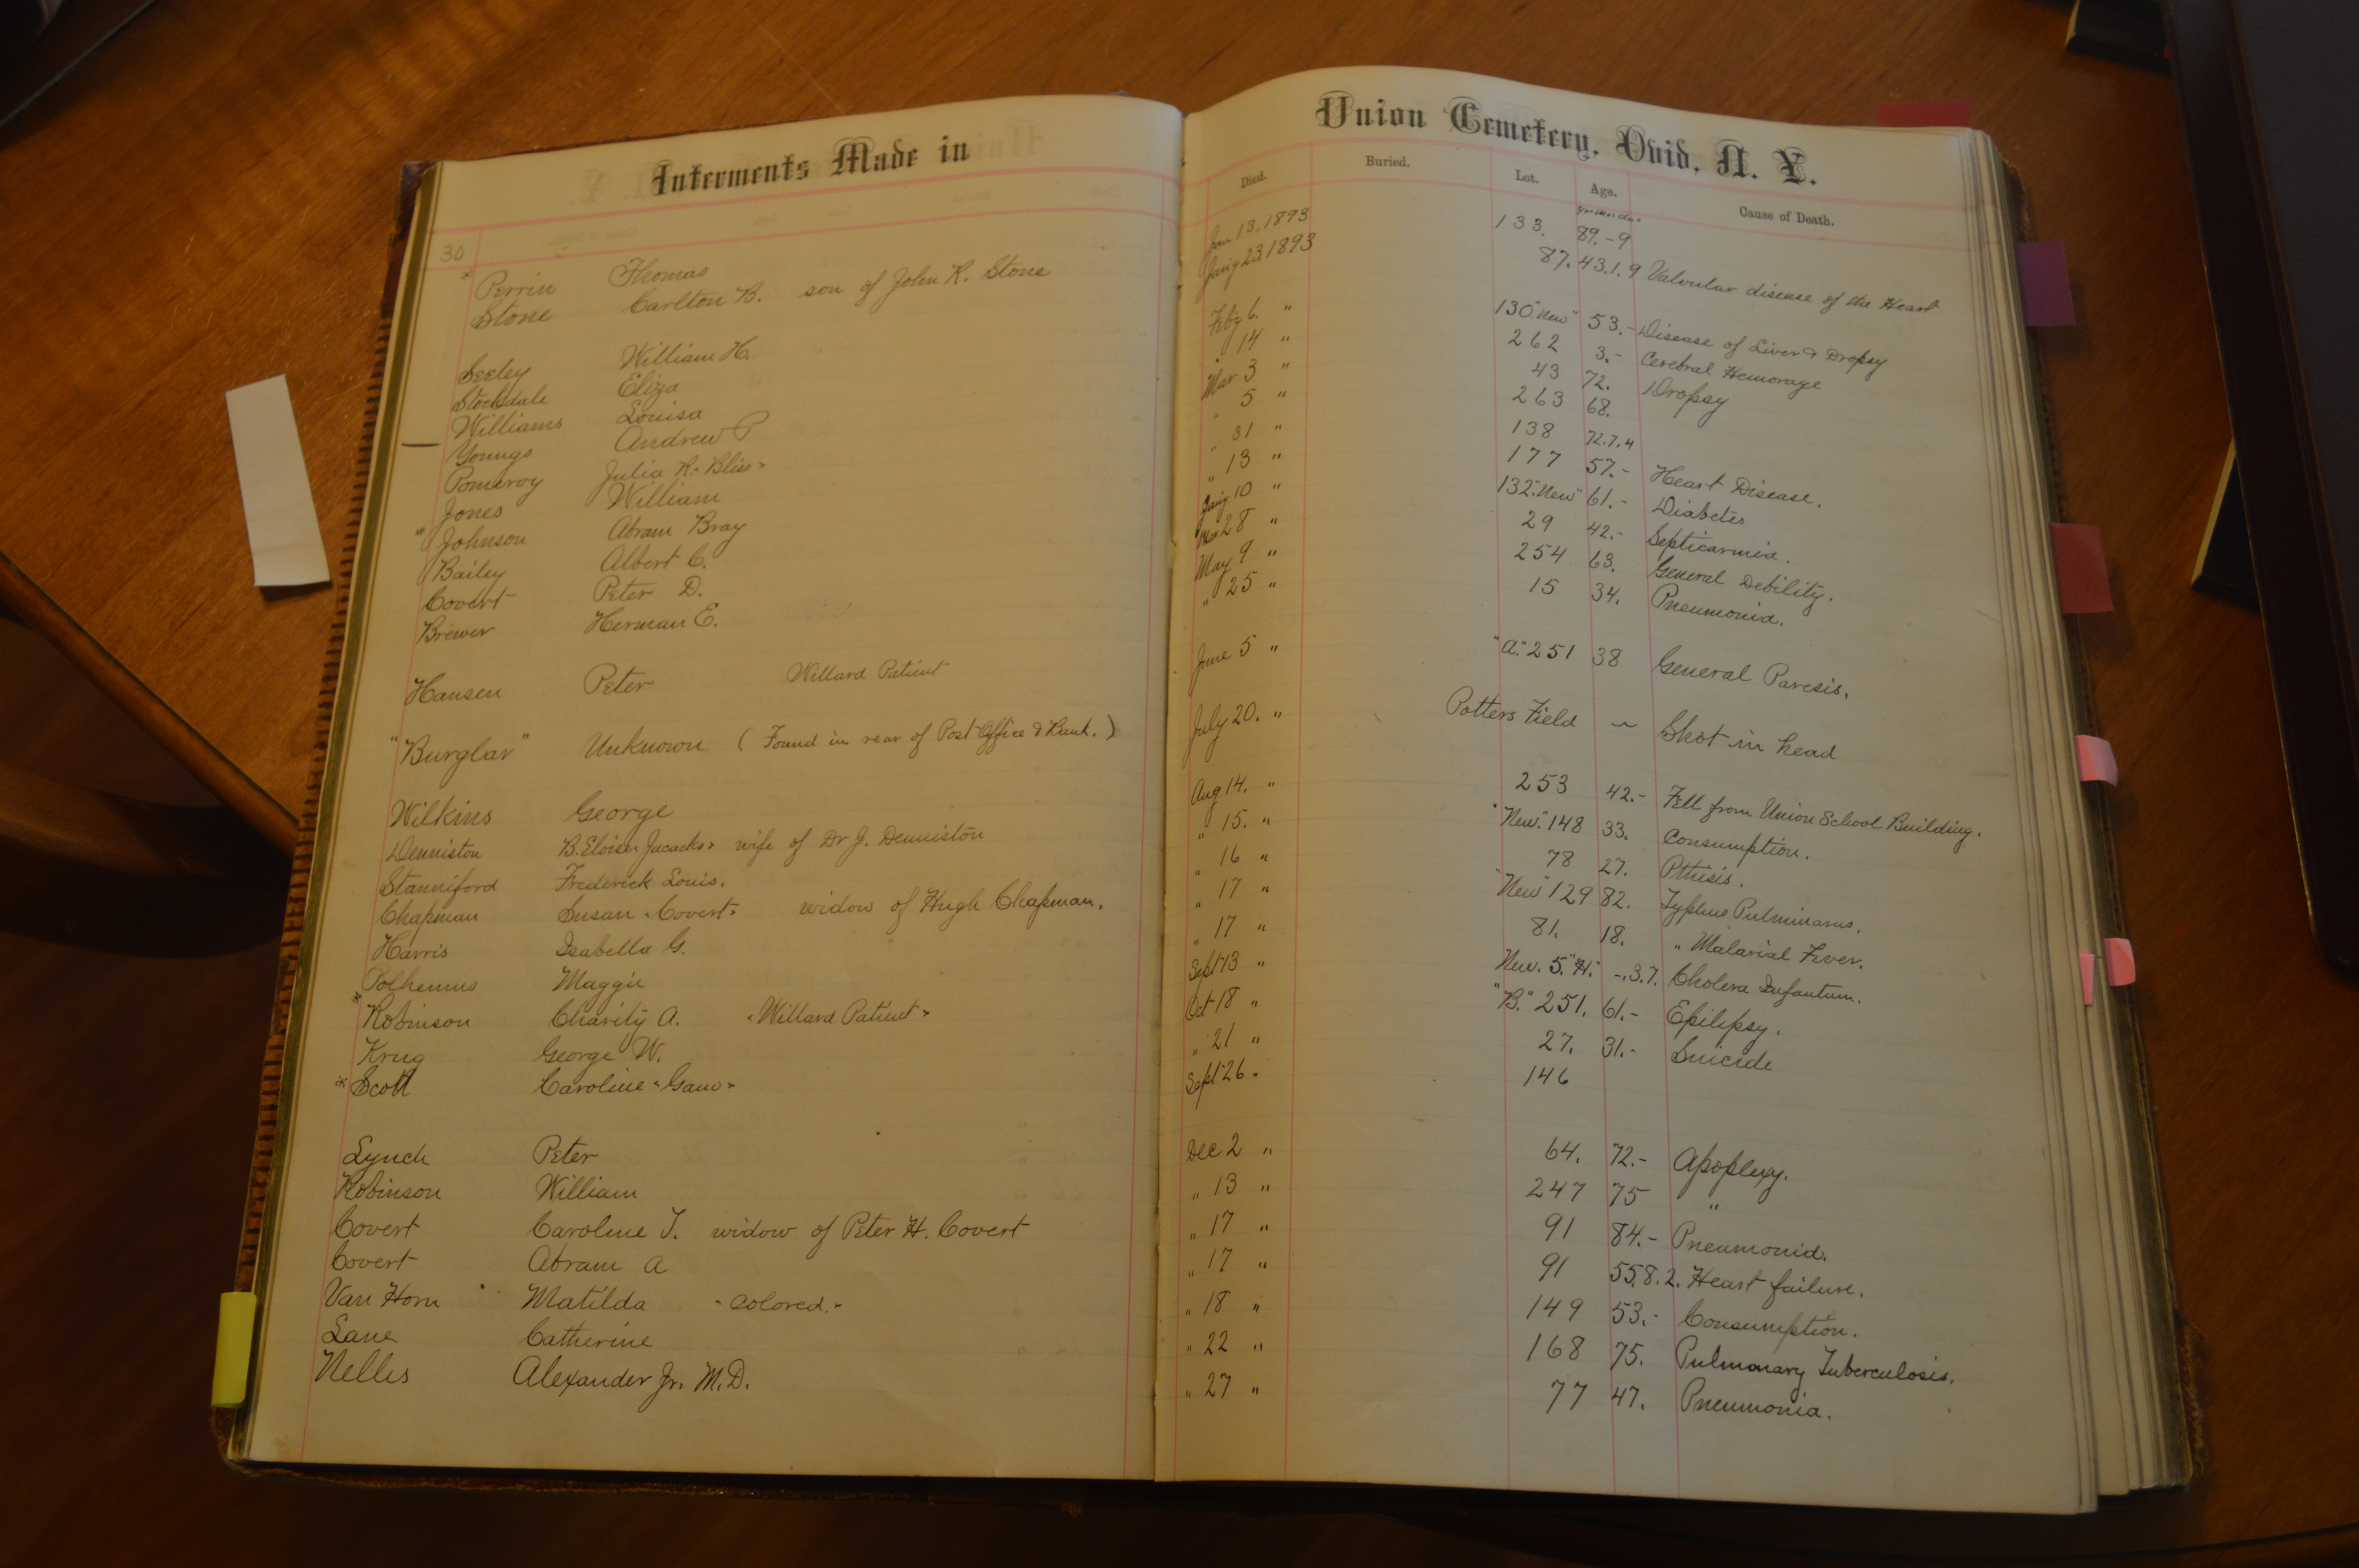 Interments Made in Union Cemetery, Ovid, N. Y.
Died. Buried. Lot. Age. Cause of Death.
30
* Perrin Thomas Jan 13, 1893 133. 89.-9
Stone Carlton B. son of John R. Stone 23, 1893 87. 43.1.9 Valvular disease of the Heart
Seeley William H. Feby 6. " 130 "New" 53.- Disease of Liver & Dropsy
Stockdale Eliza 14 " 262 3.- Cerebral Hemorage
Williams Louisa Mar 3 " 43 72. Dropsy
Youngs Andrew P " 5 " 263 68.
Pomeroy Julia R. "Bliss" " 31 " 138 72.7.4
Jones William " 13 " 177 57.- Heart Disease.
" Johnson Abram Bray 10 " 132 "New" 61.- Diabetes
Bailey Albert C. Mar 28 " 29 42.- Septicarmia.
Covert Peter D. May 9 " 254 63. General Debility.
Brewer Herman E. " 25 " 15 34. Pneumonia.
Hansen Peter Willard Patient June 5 " "A." 251 38 General Paresis.
"Burglar" Unknown. (Found in rear of Post Office & Bank.) July 20. " Potters Field ~ Shot in head
Wilkins George Aug 14. " 253 42.- Fell from Union School Building.
Denniston B. wife of Dr J. Denniston " 15. " "New." 148 33. Consumption.
Stanniford Frederick Louis. " 16 " 78 27. Pthisis.
Chapman Susan "Covert" widow of Hugh Chapman. " 17 " "New" 129 82. Typhus
Harris Isabella G. " 17 " 81. 18. " Malarial Fever.
Polhemus Maggie Sept 13 " New. 5. "H." -.3.7. Cholera Infantum.
* Robinson Charity A. "Willard Patient" Oct 18 " "B." 251. 61.- Epilepsy.
Krug George W. " 21 " 27. 31.- Suicide
* Scott Caroline Sept 26 " 146
Lynch Peter Dec 2 " 64. 72.- Apoplexy.
Robinson William " 13 " 247 75 "
Covert Caroline T. widow of Peter H. Covert " 17 " 91 84.- Pneumonia.
Covert Abram A " 17 " 91 55.8.2. Heart failure.
Van Horn Matilda "Colored." " 18 " 149 53.- Consumption.
Lane Catherine " 22 " 168 75. Pulmonary Tuberculosis.
Nelles Alexander Jr. M.D. " 27 " 77 47. Pneumonia.